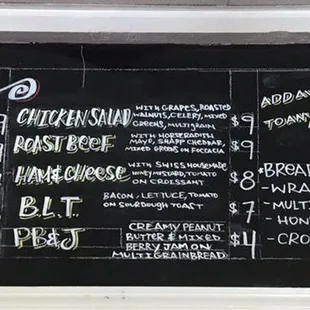 CHICKEN SALAD WITH GRAPES, ROASTED
WALNUTS, CELERY, MIXED
GREENS, MULTIGRAIN $9
ROAST BEEF WITH HORSERADITH
MAYO, SHARP CHEDDAR,
MIXED GREENS ON FOCCACIA $9
HAM & CHEESE WITH SWISS HOUSEMADE
HONEY MUSTARD, TOMATO
ON CROISSANT $8
B.L.T. BACON, LETTUCE, TOMATO
ON SOURDOUGH TOAST $7
PB&J CREAMY PEANUT
BUTTER & MIXED
BERRY JAM ON
MULTIGRAIN BREAD $4
ADD
TO ANY
*BREA
-WRA
-MULTI
-HON
-CRO